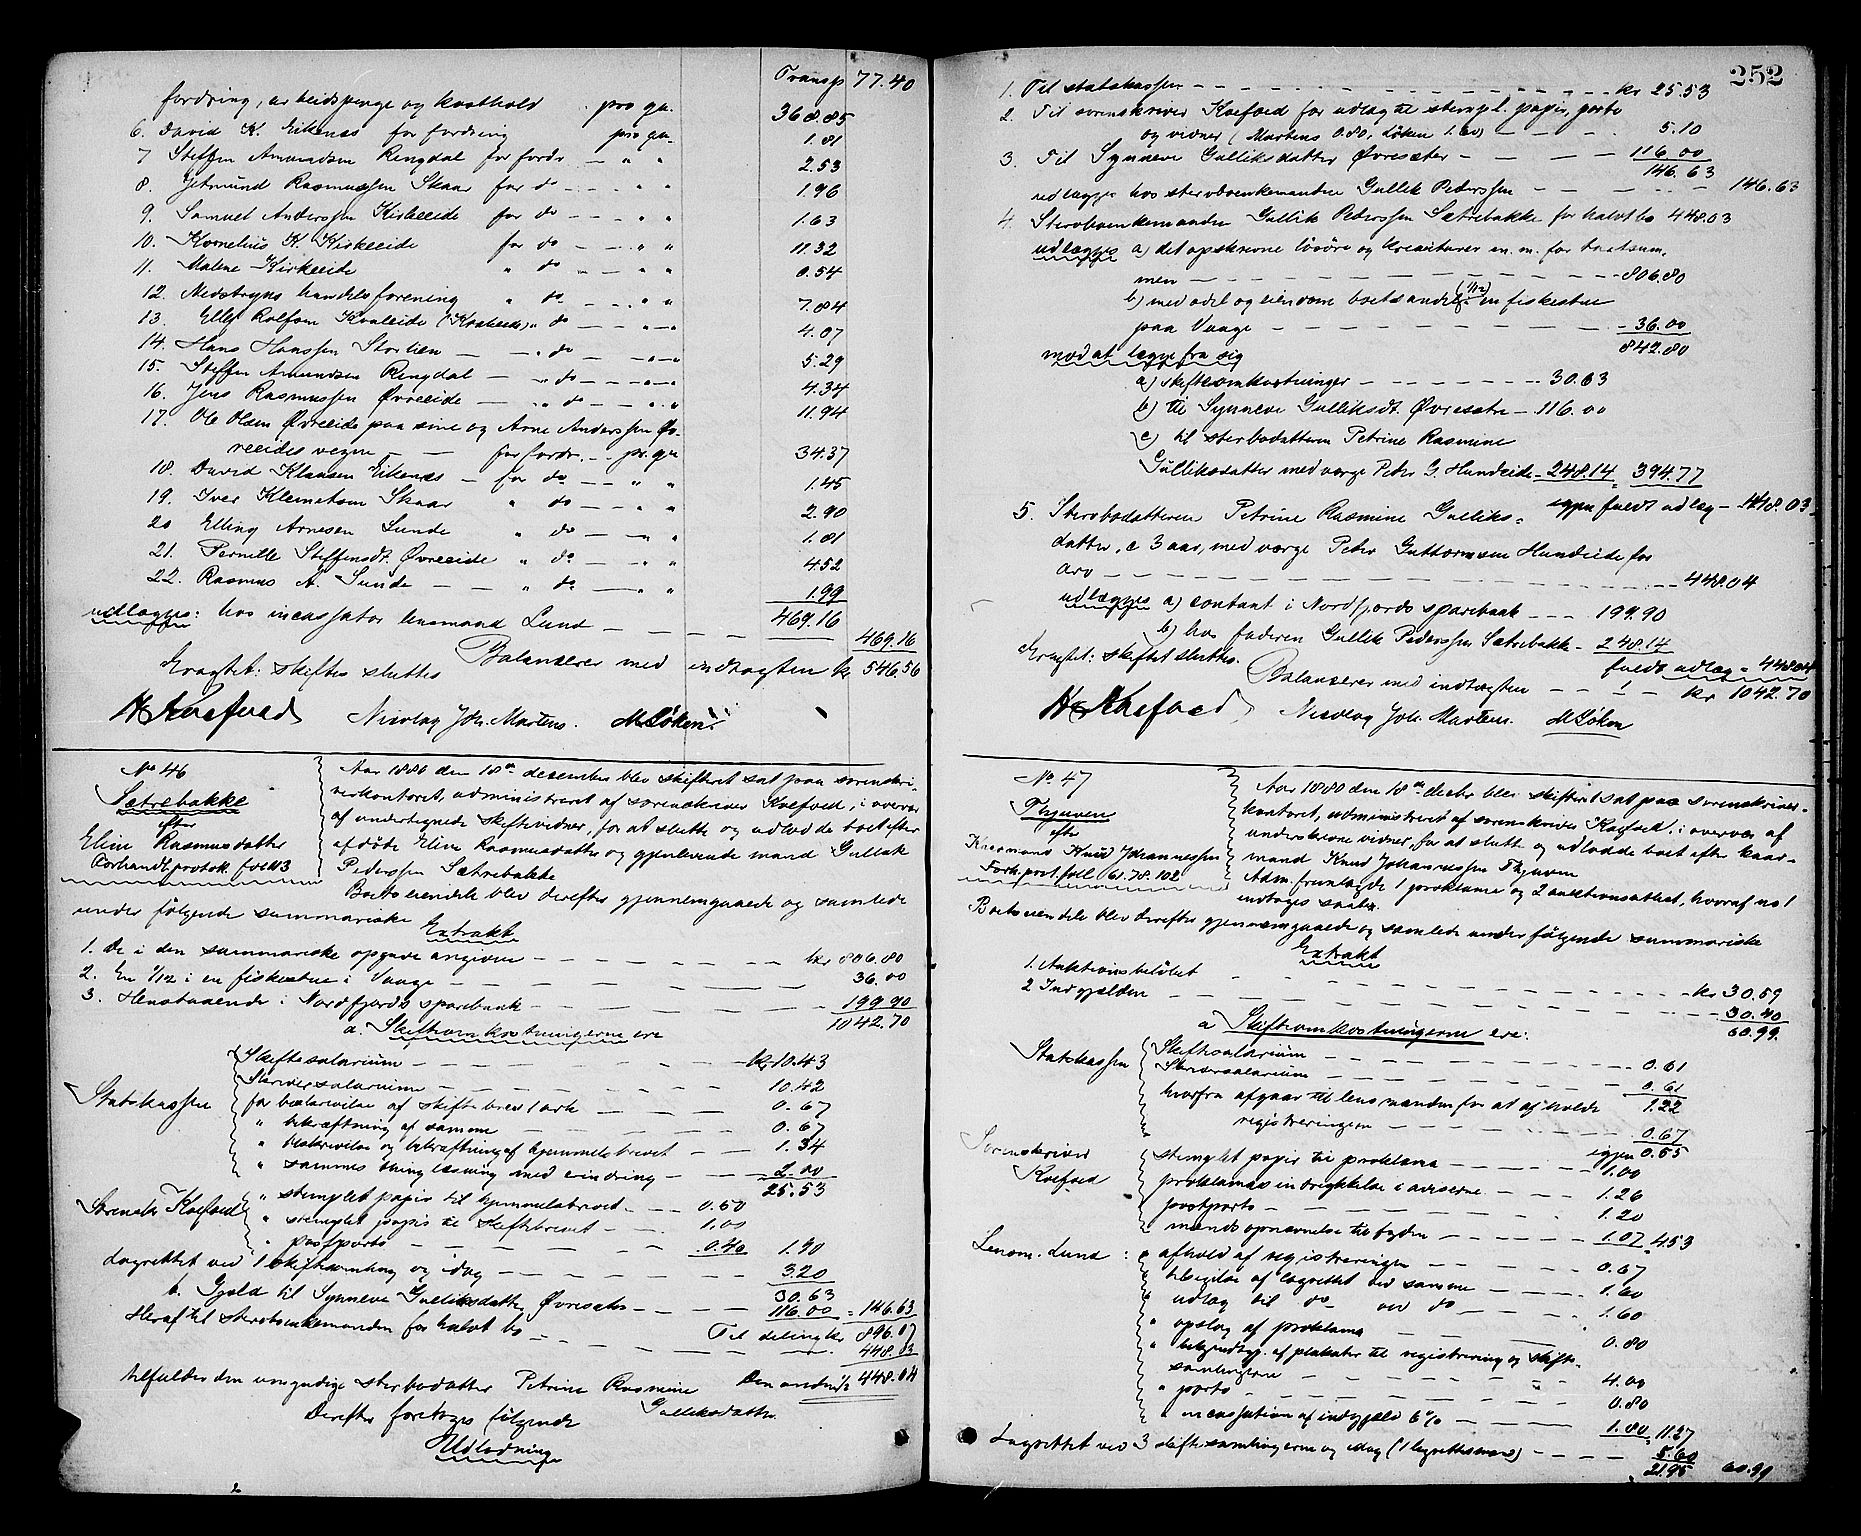 Transp 77.40
fordring, arbeidspenge og kosthold pro qu. 368.85
6. David K. Eikenæs for fordring pro qu. 1.81
7 Steffen Amundsen Ringdal for fordr — " " 2.53
8. Getmund Rasmussen Skaar for do — " " 1.96
9. Samuel Anderssen Kirkeeide for do — " " 1.63
10. Kornelius K. Kirkeeide for do — " " 11.32
11. Malene Kirkeeide " do — " " 0.54
12. Medstryns handelsforening " do — " " 7.84
13. Ellef Rolfsen Kvaleide " do — " — " 4.07
14. Hans Hanssen Storlien — " do — " — " 5.29
15. Steffen Amundsen Ringdal — " do — " — " 4.34
16. Jens Rasmussen Øvreeide — " do — " " 11.94
17. Ole Olsen Øvreeide paa sine og Arne Anderssen Øv-
reeides vegne — for fordr. — pr. qu 34.37
18. David Klausen Eikenæs — for do — " " 1.45
19. Iver Klemetsen Skaar " do — " " 2.90
20 Elling Arnesen Sunde " do — " 1.81
21. Pernille Steffensdt. Øvreeide " do — " " 4.52
22. Rasmus A. Sunde — " do — " " 1.99
469.16
udlægges: hos incassator lensmand Lund — — — 469.16
Balancerer med indtægten kr 546.56
Eragtet: skiftet sluttes
H Koefoed Nicolay Joh. Martens. M Løken.
No 46
Sætrebakke
efter
Eline Rasmusdatter
Forhandl. protok. fol 113
Aar 1880 den 18de desember blev skifteret sat paa sorenskri-
verkontoret, administreret af sorenskriver Koefoed, i overvær
af undertegnede skiftevidner, for at slutte og udlodde boet efter
afdøde Eline Rasmusdatter og gjenlevende mand Gullik
Pederssen Sætrebakke
Boets eiendele blev derefter gjennemgaaede og samlede
under følgende summariske
Extrakt
1. De i den summariske opgave angivne — — — kr 806.80
2. En 1/12 i en fiskestue i Vaage — — — 36.00
3. Henstaaende i Nordfjords sparebank — — — 199.90
1042.70
a. Skifteomkostningerne ere
Statskassen
Skiftesalarium — — — kr 10.43
Skriversalarium — — — 10.42
for beskrivelse af skiftebrev 1 ark — — 0.67
" bekræftning af samme — — 0.67
" beskrivelse og bekræftning af hjemmelsbrevet — — 1.34
" sammes thinglæsning med eindring — — 2.00
25.53
Sorenskr Koefoed
" stemplet papir til hjemmelsbrevet — 0.50
" stemplet papir til skiftebrevet — 1.00
" postporto — — — 0.40 1.90
Lagrettet ved 1 skiftesamling og idag — — — 3.20
30.63
b. Gjæld til Synneve Gulliksdatter Øvresæter — — — 116.00 = 146.63
Til deling kr 896.07
Heraf til sterboenkemanden for halvt bo — — — 448.03
Den anden ½ 448.04
tilfalder den umyndige sterbodatter Petrine Rasmine
Gulliksdatter
Derefter foretoges følgende
Udlodning
252
1. Til statskassen — — — kr 25.53
2. Til sorenskriver Koefoed for udlag til stempl. papir, porto
og vidner (Martens 0.80, Løken 1.60) — — — 5.10
3. Til Synneve Gulliksdatter Øvresæter — — — 116.00
146.63
udlægges hos sterboenkemanden Gullik Pederssen — — — 146.63
4. Sterboenkemanden Gullik Pederssen Sætrebakke for halvt bo 448.03
udlægges a) det opskrevne løsøre og kreaturer m. m. for taxtsum-
men — — — 806.80
b) med odel og eiendom boets andel (1/12) i en fiskestue
paa Vaage — — — 36.00
842.80
mod at lægge fra sig
a) skifteomkostninger — — — 30.63
b) til Synneve Gulliksdt. Øvresætre — 116.00
c) til sterbodatteren Petrine Rasmine
Gulliksdatter med værge Peter G. Hundeide — 248.14 = 394.77
igjen fuldt udlæg — 448.03
5. Sterbodatteren Petrine Rasmine Gulliks-
datter, c 3 aar, med værge Peter Guttormsen Hundeide for
arv — — — 448.04
udlægges a) contant i Nordfjords sparebank — — 199.90
b) hos faderen Gullik Pederssen Sætrebakke — 248.14
fuldt udlæg = 448.04
Eragtet: skiftet sluttes.
Balancerer med indtægten — — kr 1042.70
H Koefoed Nicolay Joh. Martens. M Løken
No. 47
Thjuven
efter
Kaarmand Knud Johannessen
Forh. prot. fol. 61. 78. 102
Aar 1880 den 18de decbr blev skifteret sat paa sorenskriver-
kontoret, administreret af sorenskriver Koefoed, i overvær af
underskrevne vidner, for at slutte og udlodde boet efter kaar-
mand Knud Johannessen Thjuven
Adm. fremlagde 1 proklama og 2 auktionsattest, hvoraf no 1
indtages saal.
Boets eiendele blev derefter gjennemgaaede og samlede under følgende summariske
Extrakt
1. Auktionsbeløbet — — — kr 30.59
2 Indgjælden — — — 30.40
60.99
a Skifteomkostningerne ere:
Statskassen
Skiftesalarium — — — 0.61
Skriversalarium — — — 0.61
1.22
hvorfra afgaar til lensmanden for at afholde
registreringen — — — 0.67
igjen 0.55
Sorenskriver
Koefoed
stemplet papir til proklama — — — 1.00
proklamas indrykkelse i aviserne — — — 1.26
postporto — — — 1.20
mænds opnævnelse til fogden — — 1.07 = 4.53
Lensm. Lund :
" afhold af registreringen — — — 0.67
" tilsigelse af lagrettet ved samme — — — 1.60
" udlæg til do ved do — — — 1.60
" opslag af proklama — — — 0.80
" bekjendtgj. af plakater til registrering og skifte-
samlingerne — — — 4.00
" porto — — — 0.80
" incassation af indgjæld 6% — — — 1.80 = 11.27
Lagrettet ved 3 skiftesamlingerne og idag (1 lagrettesmand) — — — 5.60
21.95 60.99